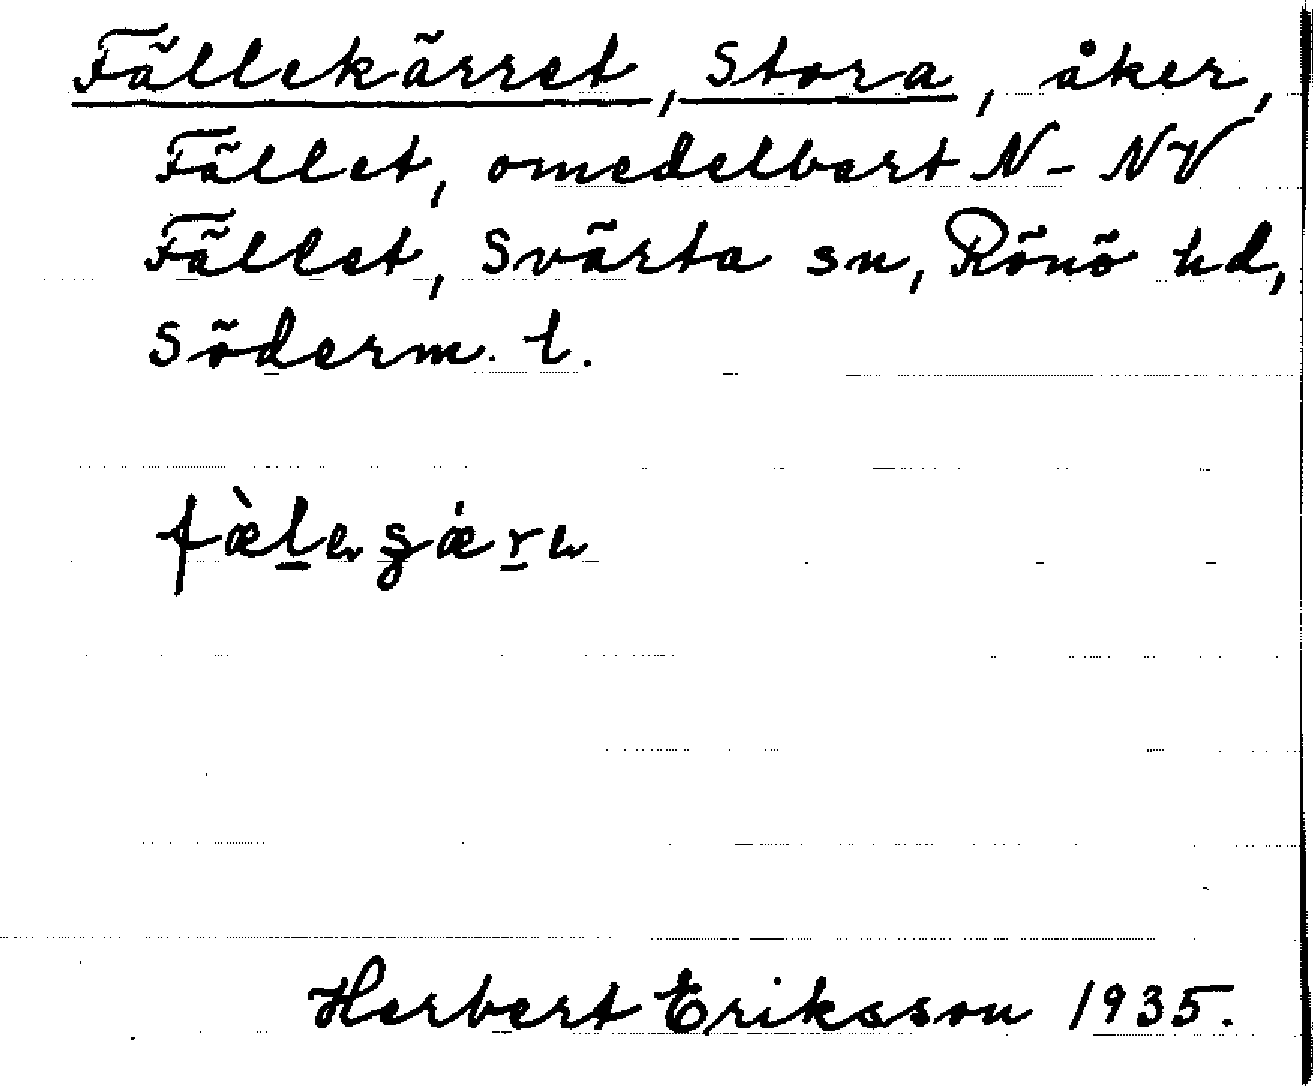 Fällekärret, Stora, åker,
Fället, omedelbart N - NV
Fället, Svärta sn, Rönö hd,
Söderm. l.
Herbert Eriksson 1935.